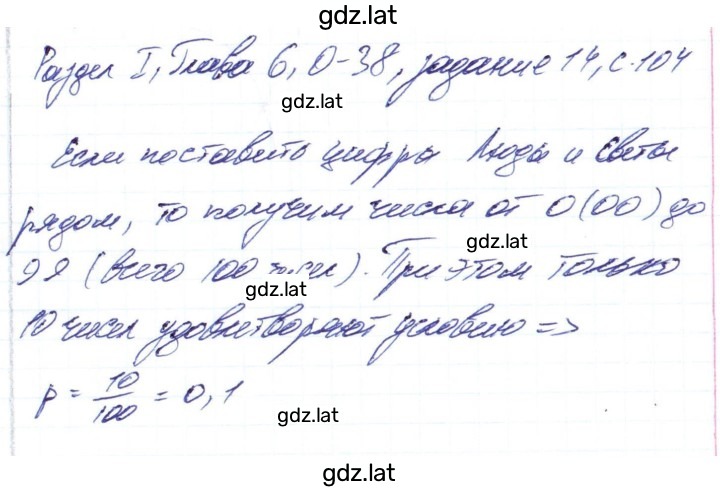 gdz.lat
Раздел I, Глава 6, О-38, задание 14, с. 104
gdz.lat
Если поставить цифры Люды и Светы
рядом, то получим числа от 0 (00) до
gdz.lat
99 (всего 100 чисел). При этом только
gdz.lat
10 чисел удовлетворяют условию =>
p = 10/100 = 0,1
gdz.lat
gdz.lat